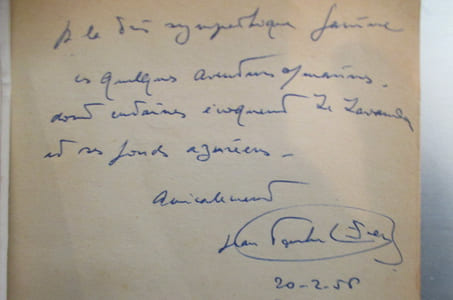 A la très sympathique
ces quelques aventures s/marines.
dont certaines évoquent Le Lavandou
et ses fonds azuréens –
Amicalement
Jean